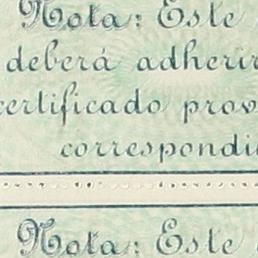 Nota: Este
deberá adherir
certificado prov
correspondi
Nota: Este